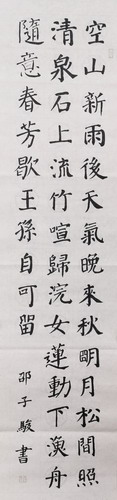 空山新雨後天氣晚來秋明月松間照
清泉石上流竹喧歸浣女蓮動下漁舟
隨意春芳歇王孫自可留
邵子駿書